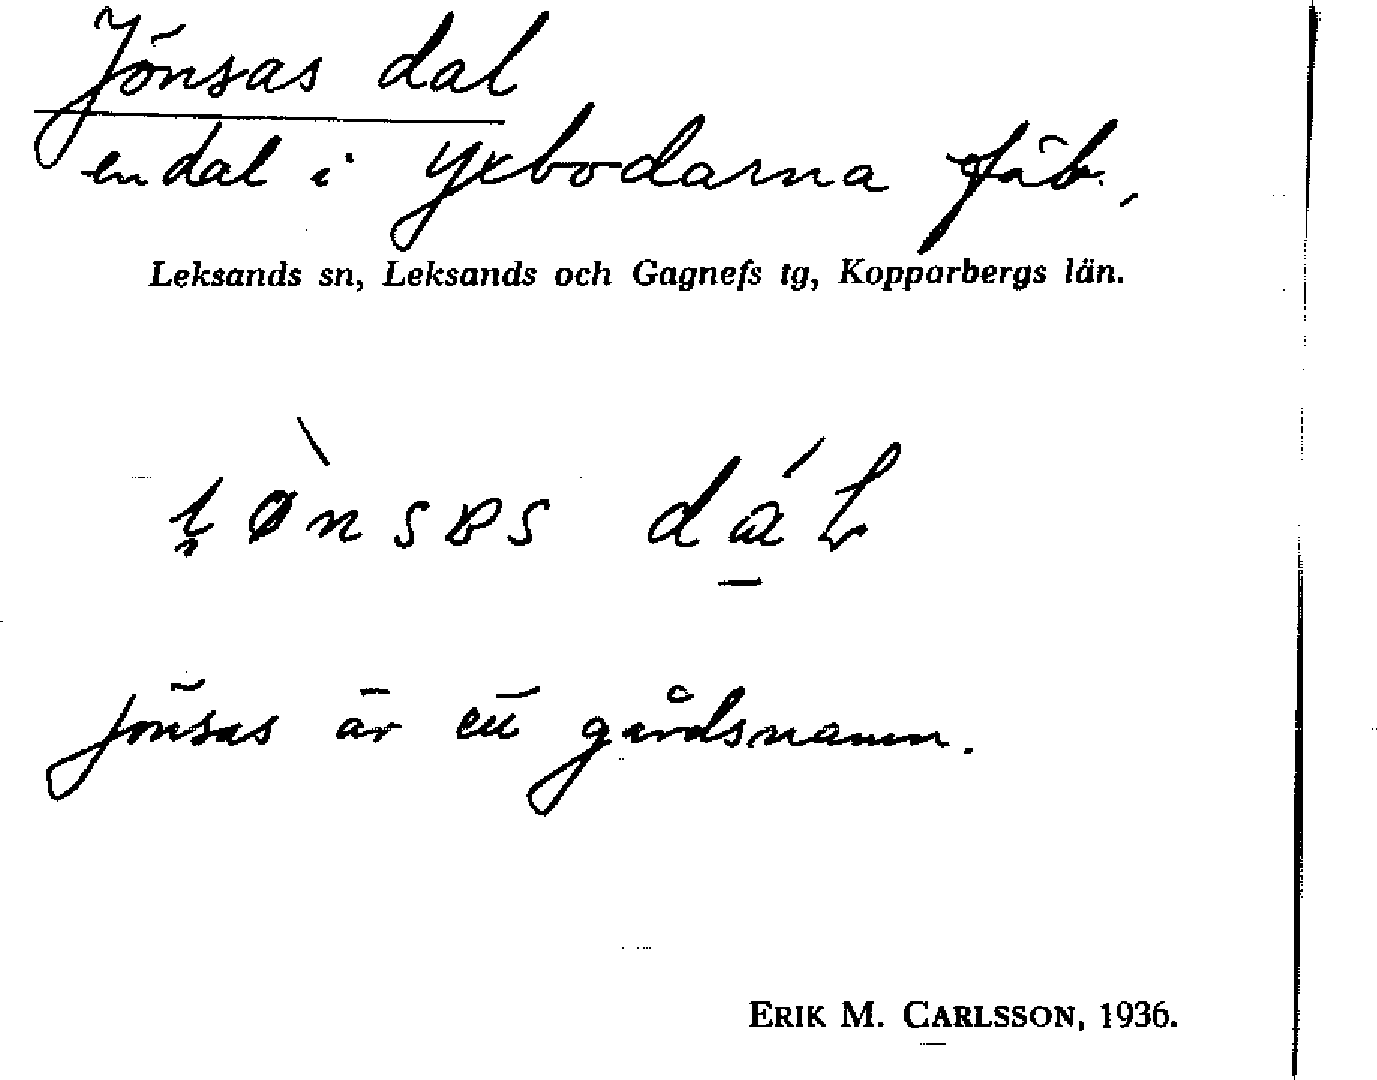 Jönsas dal
en dal i Yxbodarna fäb.,
Leksands sn, Leksands och Gagnefs tg, Kopparbergs län.
Jönsas är ett gårdsnamn.
ERIK M. CARLSSON, 1936.